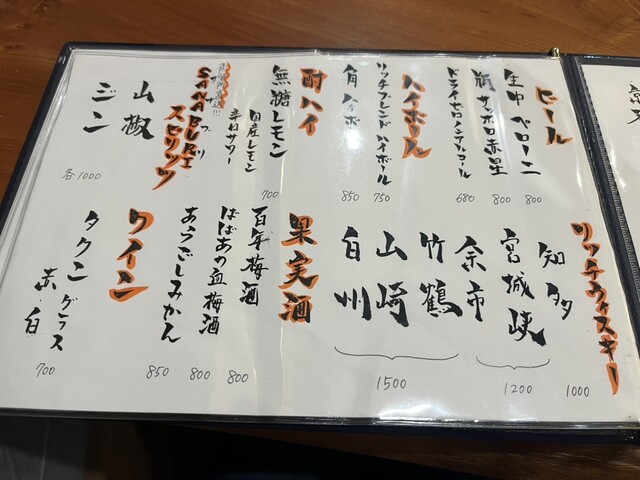 ビール
生中 ペローニ 800
瓶 サッポロ赤星 800
ドライゼロノンアルコール 680
ハイボール
リッチブレンドハイボール 750
角ハイボ 850
酎ハイ
無糖レモン 700
国産レモン
辛口サワー
SANABURI
サナブリ
スピリッツ
山椒
ジン
各1000
リッチウィスキー
知多 1000
宮城峡
余市
1200
竹鶴
山崎
白州
1500
果実酒
百年梅酒 800
ばばあの血梅酒 800
あらごしみかん 850
ワイン
タクン グラス
赤・白
700